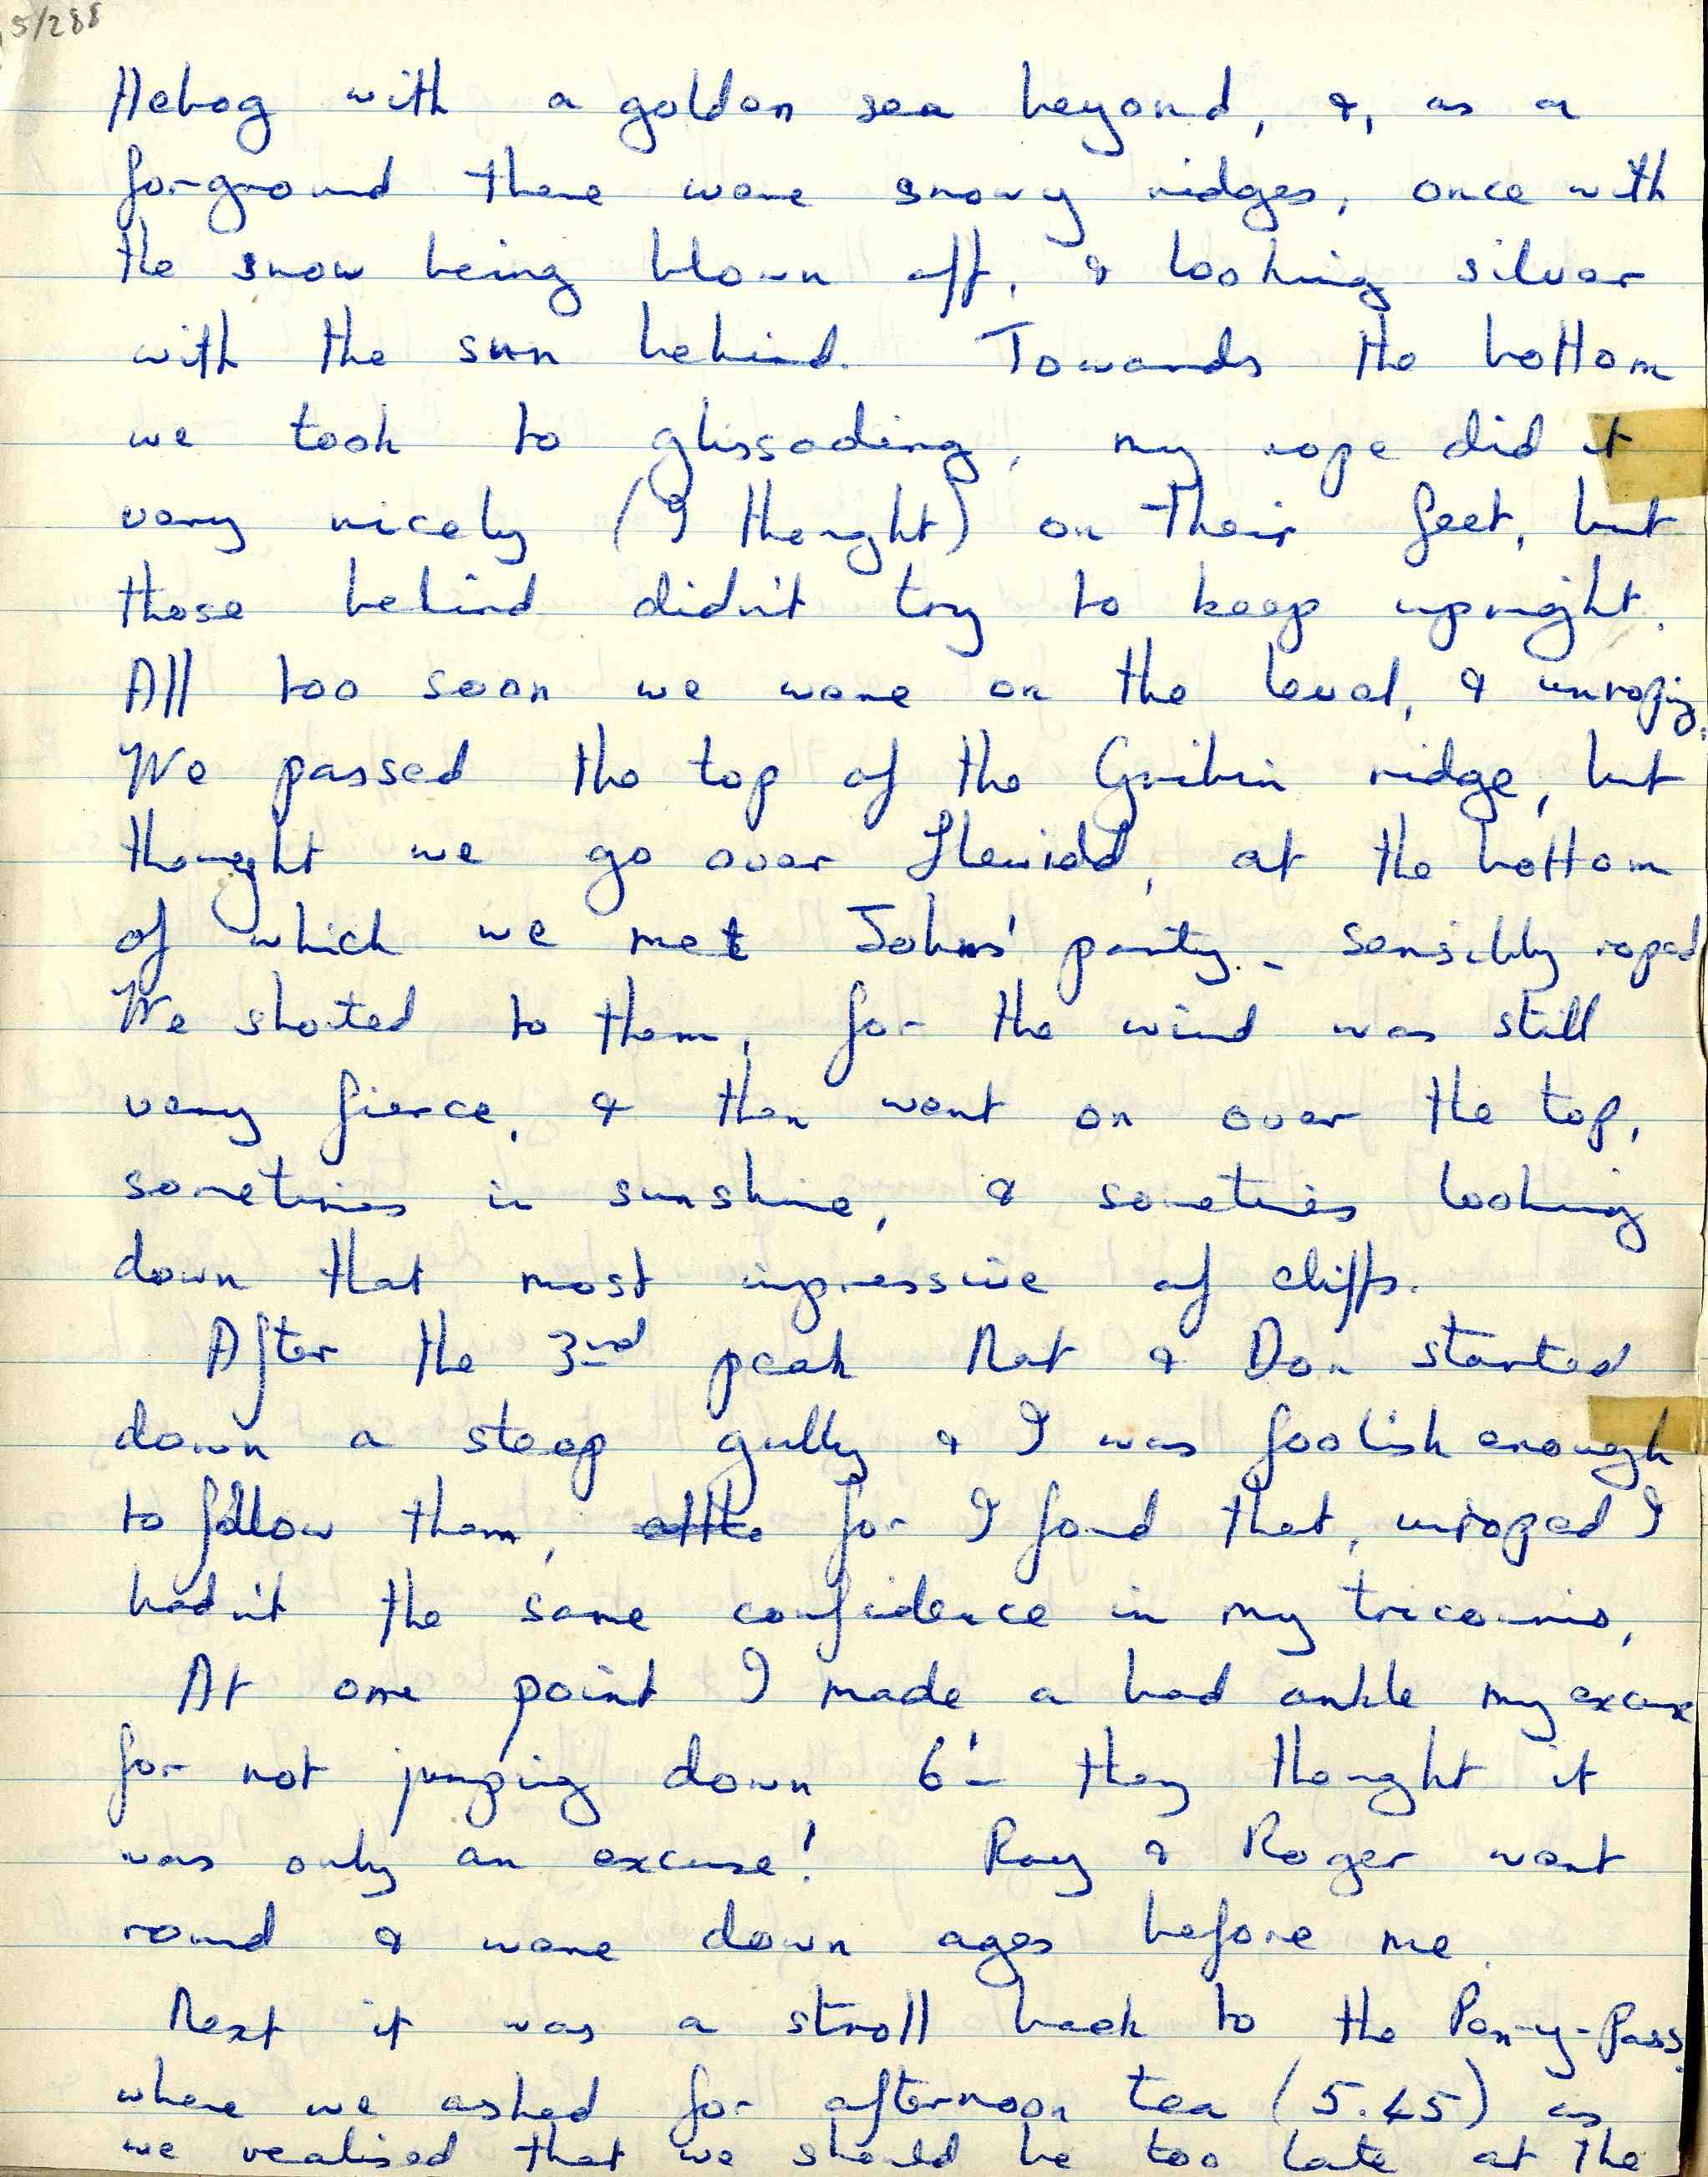 5/288
Hebog with a golden sea beyond, &, as a
forground there were snowy ridges, once with
the snow being blown off, & looking silver
with the sun behind. Towards the bottom
we took to glissading, my rope did it
very nicely (I thought) on their feet, but
those behind didn't try to keep upright.
All too soon we were on the level, & unroping.
We passed the top of the Gribin ridge, but
thought we go over Lliwidd, at the bottom
of which we met Johns' party - sensibly roped
We shouted to them, for the wind was still
very fierce, & then went on over the top,
sometimes in sunshine, & sometimes looking
down that most impressive of cliffs.
After the 3rd peak Nat & Don started
down a steep gully & I was foolish enough
to follow them, altho for I found that, unroped I
hadn't the same confidence in my tricounis,
At one point I made a bad ankle my excuse
for not jumping down 6' - they thought it
was only an excuse! Ray & Roger went
round & were down ages before me.
Next it was a stroll back to the Pen-y-Pass,
where we asked for afternoon tea (5.45) as
we realised that we should be too late at the